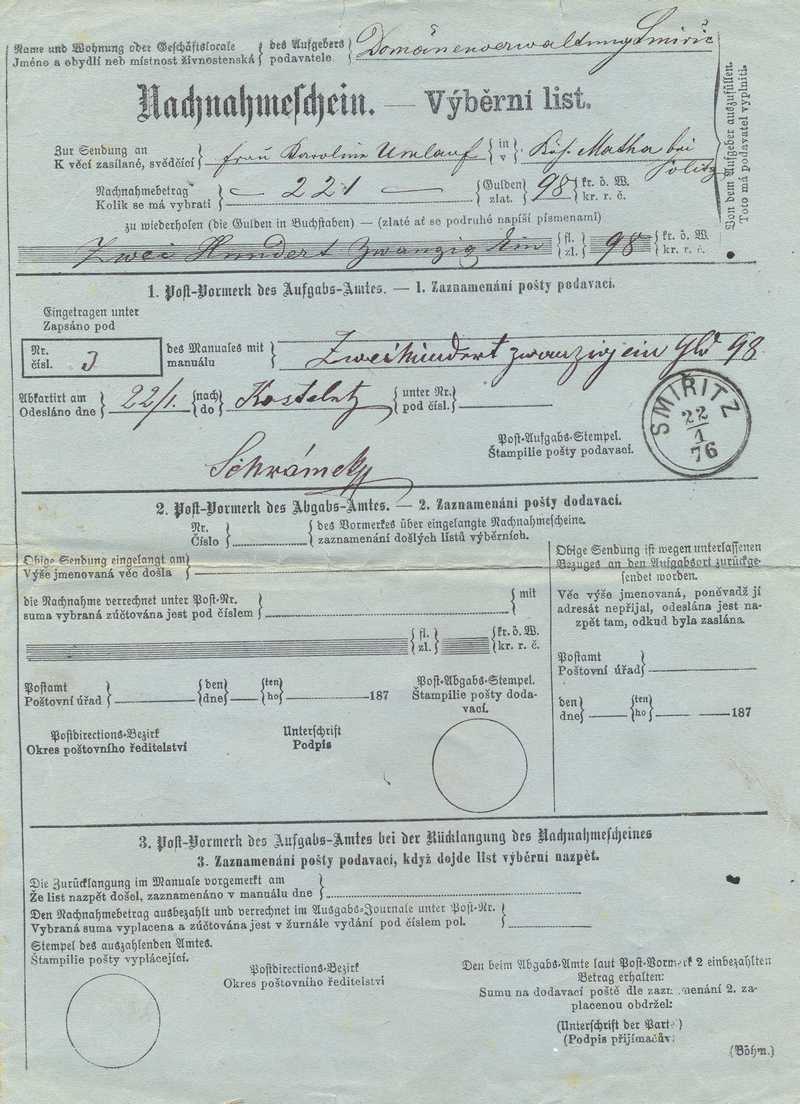 Name und Wohnung oder Geschäftslocale des Aufgebers Domänenverwaltung Smiric
Jméno a obydlí neb místnost živnostenská podavatele
Nachnahmeschein. — Výběrní list.
Zur Sendung an Frau Karoline Umlauf in
K věcí zasílané, svědčící v Matha bei Politz
Nachnahmebetrag 221 Gulden 98 kr. ö. W.
Kolik se má vybrati zlat. kr. r. č.
zu wiederholen (die Gulden in Buchstaben) — (zlaté ať se podruhé napíší písmenami)
Zwei Hundert zwanzig Ein fl. 98 kr. ö. W.
zl. kr. r. č.
Von dem Aufgeber auszufüllen.
Toto má podavatel vyplniti.
1. Post-Vormerk des Aufgabs-Amtes. — 1. Zaznamenání pošty podavací.
Eingetragen unter
Zapsáno pod
Nr. 3 des Manuales mit Zweihundert zwanzig ein 98
čísl. manuálu
Abkartirt am 22/1. nach Kosteletz unter Nr.
Odesláno dne do pod čísl.
SMIŘITZ
22
1
76
Post-Aufgabs-Stempel.
Štampilie pošty podavací.
2. Post-Vormerk des Abgabs-Amtes. — 2. Zaznamenání pošty dodavací.
Nr. des Vormerkes über eingelangte Nachnahmescheine.
Číslo zaznamenání došlých listů výběrních.
Obige Sendung eingelangt am
Výše jmenovaná věc došla
die Nachnahme verrechnet unter Post-Nr. mit
suma vybraná zúčtována jest pod číslem
fl. kr. ö. W.
zl. kr. r. č.
Postamt den ten
Poštovní úřad dne ho 187
Post-Abgabs-Stempel.
Štampilie pošty dodavací.
Postdirections-Bezirk Unterschrift
Okres poštovního ředitelství Podpis
Obige Sendung ist wegen unterlassenen
Bezuges an den Aufgabsort zurückgesendet
worden.
Věc výše jmenovaná, poněvadž jí
adresát nepřijal, odeslána jest nazpět
tam, odkud byla zaslána.
Postamt
Poštovní úřad
den ten
dne ho 187
3. Post-Vormerk des Aufgabs-Amtes bei der Rücklangung des Nachnahmescheines
3. Zaznamenání pošty podavací, když dojde list výběrní nazpět.
Die Zurücklangung im Manuale vorgemerkt am
Že list nazpět došel, zaznamenáno v manuálu dne
Den Nachnahmebetrag ausbezahlt und verrechnet im Ausgabs-Journale unter Post-Nr.
Vybraná suma vyplacena a zúčtována jest v žurnále vydání pod číslem pol.
Stempel des auszahlenden Amtes.
Štampilie pošty vyplácející.
Postdirections-Bezirk
Okres poštovního ředitelství
Den beim Abgabs-Amte laut Post-Vormerk 2 einbezahlten
Betrag erhalten:
Sumu na dodavací poště dle zaznamenání 2. zaplacenou
obdržel:
(Unterschrift der Partei)
(Podpis přijímačův)
(Böhm.)